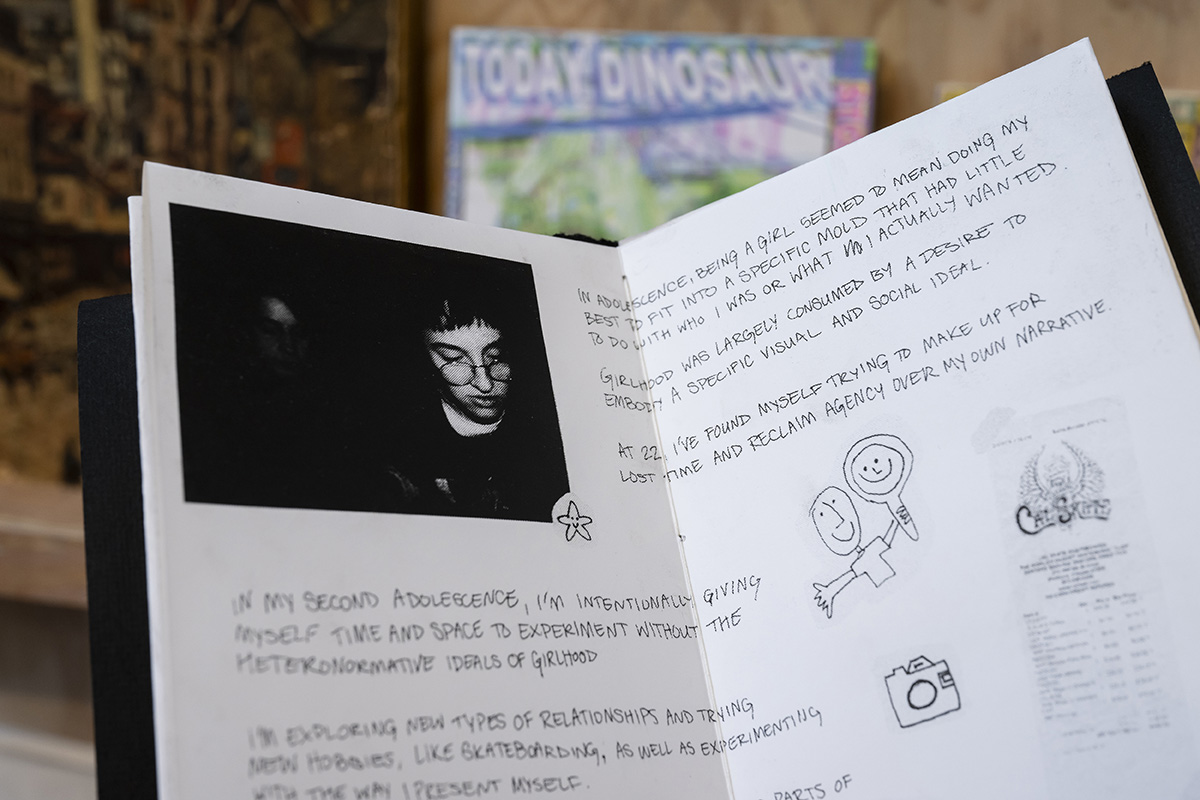 TODAY DINOSAUR
IN ADOLESCENCE, BEING A GIRL SEEMED TO MEAN DOING MY
BEST TO FIT INTO A SPECIFIC MOLD THAT HAD LITTLE
TO DO WITH WHO I WAS OR WHAT I ACTUALLY WANTED.
GIRLHOOD WAS LARGELY CONSUMED BY A DESIRE TO
EMBODY A SPECIFIC VISUAL AND SOCIAL IDEAL.
AT 22, I'VE FOUND MYSELF TRYING TO MAKE UP FOR
LOST TIME AND RECLAIM AGENCY OVER MY OWN NARRATIVE.
CAL SKATE
IN MY SECOND ADOLESCENCE, I'M INTENTIONALLY GIVING
MYSELF TIME AND SPACE TO EXPERIMENT WITHOUT THE
HETERONORMATIVE IDEALS OF GIRLHOOD
I'M EXPLORING NEW TYPES OF RELATIONSHIPS AND TRYING
NEW HOBBIES, LIKE SKATEBOARDING, AS WELL AS EXPERIMENTING
WITH THE WAY I PRESENT MYSELF.
PARTS OF